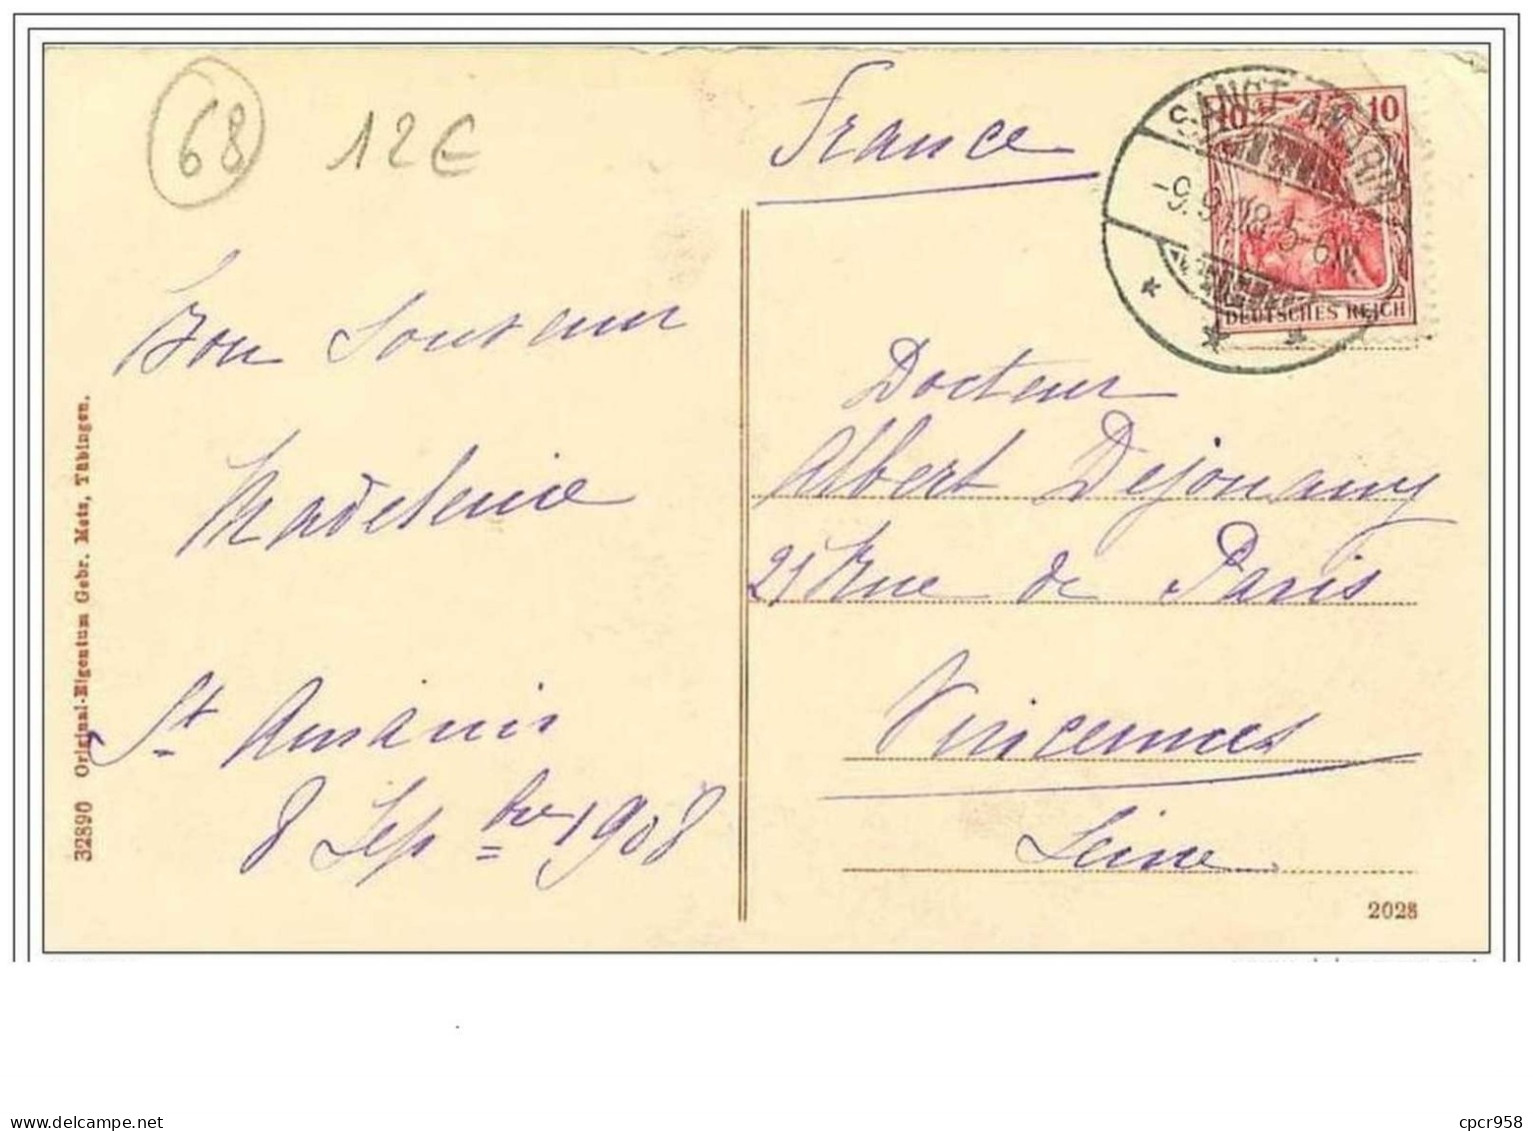 68
12€
France
SANCT AMARIN
-9.9.08.5-6N.
10
10
DEUTSCHES REICH
Bon Souvenir
Madeleine
St Amarin
8 Sepbre 1908
Docteur
Albert Dejouany
21 Rue de Paris
Vincennes
Seine
32890 Original-Eigentum Gebr. Metz, Tübingen.
2028
cpcr958